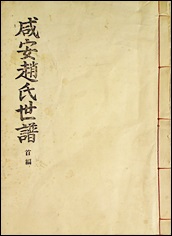 咸安趙氏世譜
首編